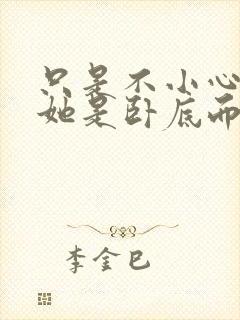 只是不小心
她是卧底而
李金巳